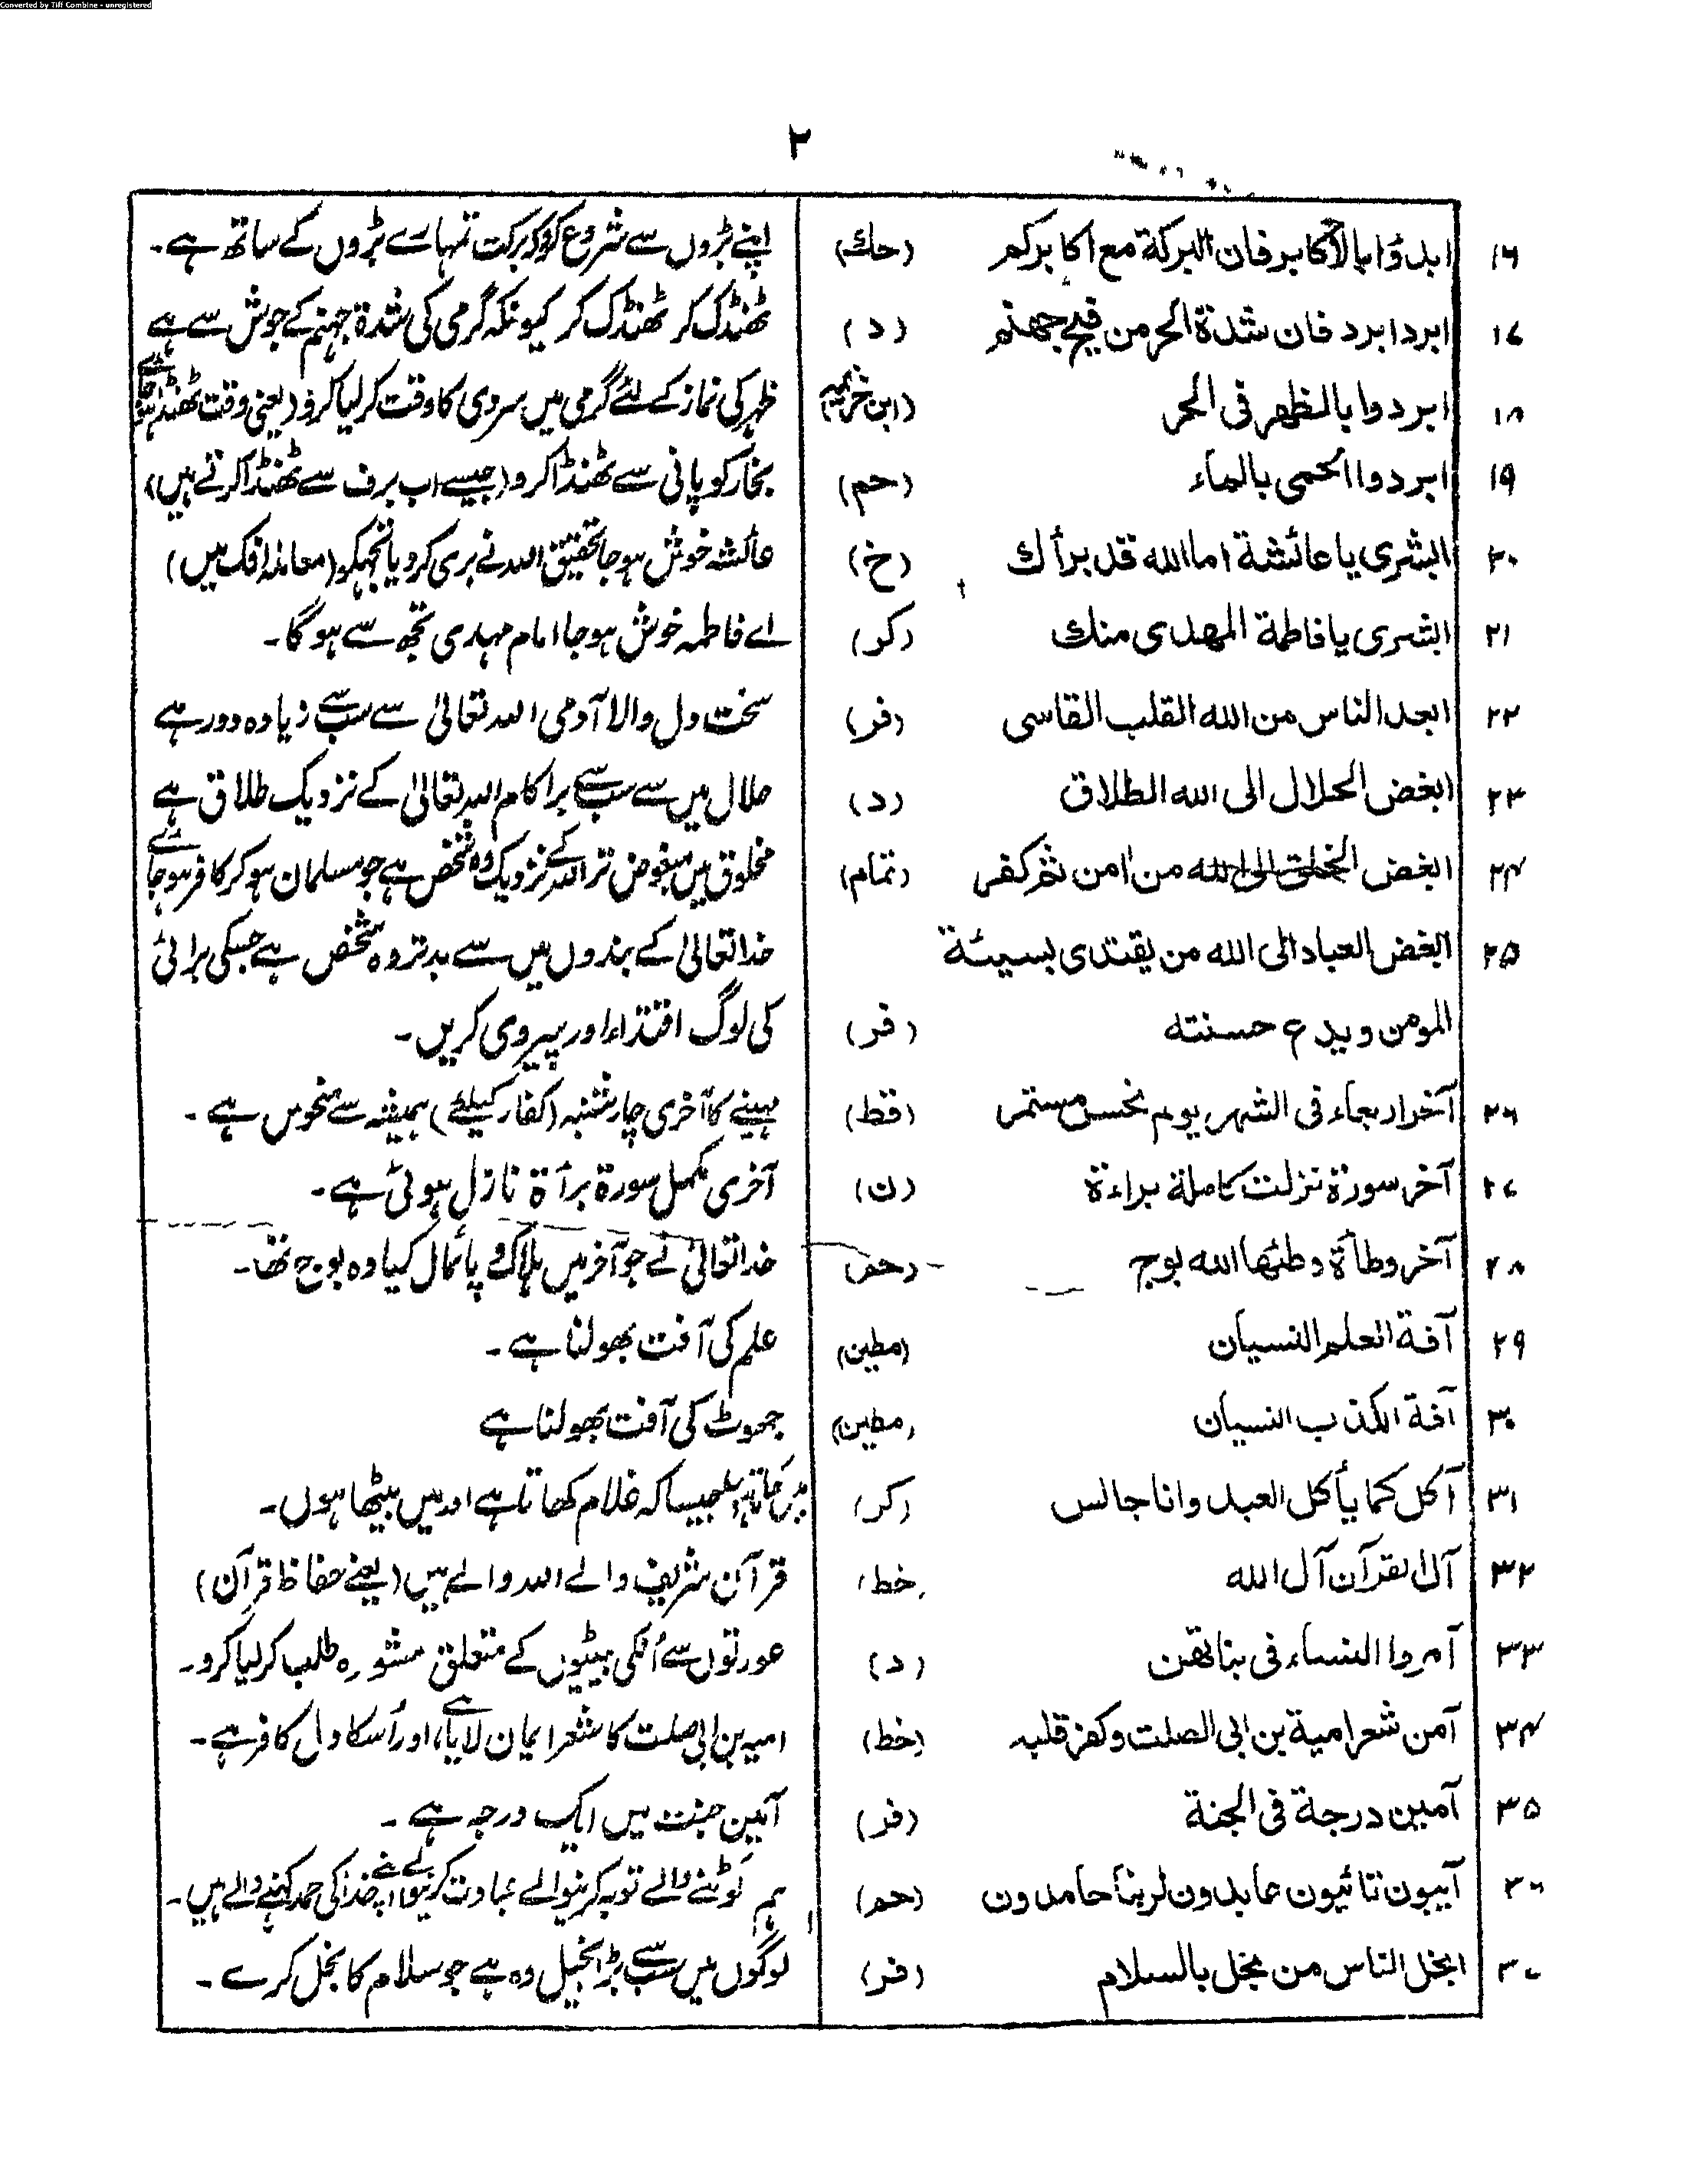 Converted by Tiff Combine - unregistered
۲
۱۶ ابدؤا بالاکابر فان البرکة مع اکابرکم (حك) اپنے بڑوں سے شروع کرو کہ برکت تمہارے بڑوں کے ساتھ ہے۔
۱۷ ابرد ابرد فان شدة الحر من فیح جهنم (د) ٹھنڈک کر ٹھنڈک کر کیونکہ گرمی کی شدة جہنم کے جوش سے ہے
۱۸ ابردوا بالظهر فی الحر (ابن خزیمہ) ظہر کی نماز کے لئے گرمی میں سردی کا وقت کر لیا کرو (یعنی وقت ٹھنڈا ہو جائے
۱۹ ابردوا الحمی بالماء (حم) بخار کو پانی سے ٹھنڈا کرو (جیسے اب برف سے ٹھنڈا کرتے ہیں)
۲۰ البشری یا عائشة اما الله قد برأك (خ) عائشہ خوش ہو جا تحقیق اللہ نے بری کر دیا تجہکو (معاملہ افک میں)
۲۱ البشری یا فاطمة المهدی منك (کر) اے فاطمہ خوش ہو جا امام مہدی تجھ سے ہو گا۔
۲۲ ابعد الناس من الله القلب القاسی (فر) سخت دل والا آدمی اللہ تعالیٰ سے سب سے زیادہ دور ہے
۲۳ ابغض الحلال الی الله الطلاق (د) حلال میں سے سب سے برا کام اللہ تعالیٰ کے نزدیک طلاق ہے
۲۴ ابغض الخلق الی الله من اٰمن ثم کفر (تمام) مخلوق میں مبغوض تر اللہ کے نزدیک وہ شخص ہے جو مسلمان ہو کر کافر ہو جائے
۲۵ ابغض العباد الی الله من یقتدی بسیئة خدا تعالیٰ کے بندوں میں سے بدتر وہ شخص ہے جسکی برائی
المومن ویدع حسنته (فر) کی لوگ اقتداء اور پیروی کریں۔
۲۶ آخر اربعاء فی الشهر یوم نحس مستمر (قط) مہینے کا آخری چارشنبہ (کفار کیلئے) ہمیشہ سے منحوس ہے۔
۲۷ آخر سورة نزلت کاملة براءة (ن) آخری مکمل سورة برأة نازل ہوئی ہے۔
۲۸ آخر وطأة وطئها الله بوج (حم) خدا تعالیٰ نے جو آخر میں ہلاک و پائمال کیا وہ بوج تھا۔
۲۹ آفة العلم النسیان (مطین) علم کی آفت بھولنا ہے۔
۳۰ آفة الکذب النسیان (مطین) جھوٹ کی آفت بھولنا ہے
۳۱ آکل کما یأکل العبد وانا جالس (کر) میں کھاتا ہوں جیسا کہ غلام کھاتا ہے اور میں بیٹھا ہوں۔
۳۲ آل القرآن آل الله (خط) قرآن شریف والے اللہ والے ہیں (یعنے حفاظ قرآن)
۳۳ آمروا النساء فی بناتهن (د) عورتوں سے اُنکی بیٹیوں کے متعلق مشورہ طلب کر لیا کرو۔
۳۴ آمن شعر امیة بن ابی الصلت وکفر قلبه (خط) امیہ بن ابی صلت کا شعر ایمان لایا ہے اور اُسکا دل کافر ہے۔
۳۵ آمین درجة فی الجنة (فر) آمین جنت میں ایک درجہ ہے۔
۳۶ آیبون تائبون عابدون لربنا حامدون (حم) ہم لوٹنے والے توبہ کرنیوالے عبادت کرنیوالے اپنے خدا کی حمد کہنے والے ہیں۔
۳۷ ابخل الناس من بخل بالسلام (فر) لوگوں میں سب سے بڑا بخیل وہ ہے جو سلام کا بخل کرے۔